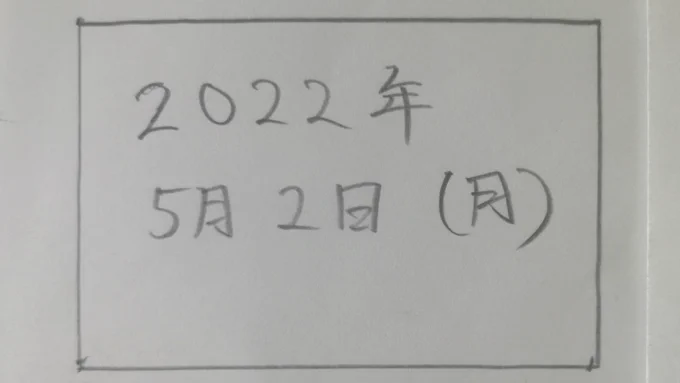 2022年
5月2日(月)